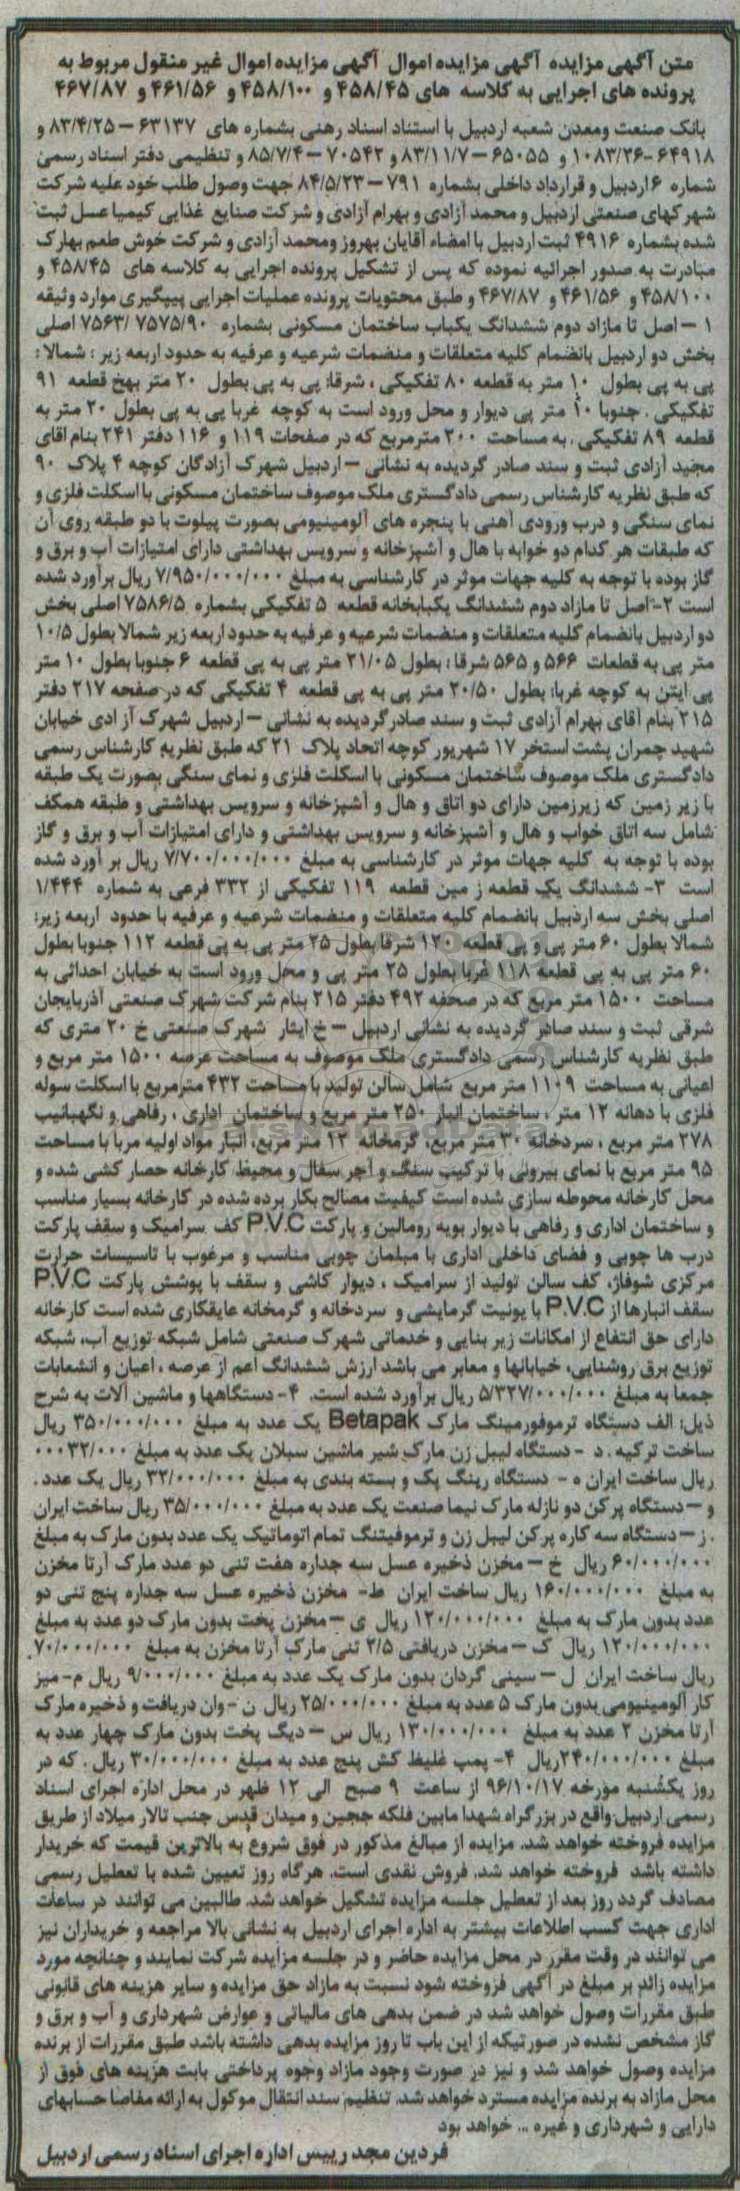 متن آگهی مزایده آگهی مزایده اموال آگهی مزایده اموال غیر منقول مربوط به
پرونده های اجرایی به کلاسه های ۴۵۸/۴۵ و ۴۵۸/۱۰۰ و ۴۶۱/۵۶ و ۴۶۷/۸۷
بانک صنعت ومعدن شعبه اردبیل با استناد اسناد رهنی بشماره های ۶۳۱۳۷ – ۸۳/۴/۲۵ و
۶۴۹۱۸ -۱۰۸۳/۲۶ و ۶۵۰۵۵ – ۸۳/۱۱/۷ و ۷۰۵۴۲ – ۸۵/۷/۴ و تنظیمی دفتر اسناد رسمی
شماره ۶ اردبیل و قرارداد داخلی بشماره ۷۹۱ – ۸۴/۵/۲۳ جهت وصول طلب خود علیه شرکت
شهرکهای صنعتی اردبیل و محمد آزادی و بهرام آزادی و شرکت صنایع غذایی کیمیا عسل ثبت
شده بشماره ۴۹۱۶ ثبت اردبیل با امضاء آقایان بهروز ومحمد آزادی و شرکت خوش طعم بهارک
مبادرت به صدور اجرائیه نموده که پس از تشکیل پرونده اجرایی به کلاسه های ۴۵۸/۴۵ و
۴۵۸/۱۰۰ و ۴۶۱/۵۶ و ۴۶۷/۸۷ و طبق محتویات پرونده عملیات اجرایی پیپگیری موارد وثیقه
۱ – اصل تا مازاد دوم ششدانگ یکباب ساختمان مسکونی بشماره ۷۵۷۵/۹۰ /۷۵۶۳ اصلی
بخش دو اردبیل بانضمام کلیه متعلقات و منضمات شرعیه و عرفیه به حدود اربعه زیر : شمالا :
پی به پی بطول ۱۰ متر به قطعه ۸۰ تفکیکی ، شرقا: پی به پی بطول ۲۰ متر بهخ قطعه ۹۱
تفکیکی . جنوبا ۱۰ متر پی دیوار و محل ورود است به کوچه غربا پی به پی بطول ۲۰ متر به
قطعه ۸۹ تفکیکی . به مساحت ۲۰۰ مترمربع که در صفحات ۱۱۹ و ۱۱۶ دفتر ۲۴۱ بنام اقای
مجید آزادی ثبت و سند صادر گردیده به نشانی – اردبیل شهرک آزادگان کوچه ۴ پلاک ۹۰
که طبق نظریه کارشناس رسمی دادگستری ملک موصوف ساختمان مسکونی با اسکلت فلزی و
نمای سنگی و درب ورودی آهنی با پنجره های آلومینیومی بصورت پیلوت با دو طبقه روی آن
که طبقات هر کدام دو خوابه با هال و آشپزخانه و سرویس بهداشتی دارای امتیازات آب و برق و
گاز بوده با توجه به کلیه جهات موثر در کارشناسی به مبلغ ۷/۹۵۰/۰۰۰/۰۰۰ ریال برآورد شده
است ۲- اصل تا مازاد دوم ششدانگ یکبابخانه قطعه ۵ تفکیکی بشماره ۷۵۸۶/۵ اصلی بخش
دو اردبیل بانضمام کلیه متعلقات و منضمات شرعیه و عرفیه به حدود اربعه زیر شمالا بطول ۱۰/۵
متر پی به قطعات ۵۶۶ و ۵۶۵ شرقا : بطول ۲۱/۰۵ متر پی به پی قطعه ۶ جنوبا بطول ۱۰ متر
پی ایتن به کوچه غربا: بطول ۲۰/۵۰ متر پی به پی قطعه ۴ تفکیکی که در صفحه ۲۱۷ دفتر
۲۱۵ بنام آقای بهرام آزادی ثبت و سند صادرگردیده به نشانی – اردبیل شهرک آز ادی خیابان
شهید چمران پشت استخر ۱۷ شهریور کوچه اتحاد پلاک ۲۱ که طبق نظریه کارشناس رسمی
دادگستری ملک موصوف ساختمان مسکونی با اسکلت فلزی و نمای سنگی بصورت یک طبقه
با زیر زمین که زیرزمین دارای دو اتاق و هال و آشپزخانه و سرویس بهداشتی و طبقه همکف
شامل سه اتاق خواب و هال و آشپزخانه و سرویس بهداشتی و دارای امتیازات آب و برق و گاز
بوده با توجه به کلیه جهات موثر در کارشناسی به مبلغ ۷/۷۰۰/۰۰۰/۰۰۰ ریال بر آورد شده
است ۳- ششدانگ یک قطعه ز مین قطعه ۱۱۹ تفکیکی از ۳۳۲ فرعی به شماره ۱/۴۴۴
اصلی بخش سه اردبیل بانضمام کلیه متعلقات و منضمات شرعیه و عرفیه با حدود اربعه زیر:
شمالا بطول ۶۰ متر پی و پی قطعه ۱۲۰ شرقا بطول ۲۵ متر پی به پی قطعه ۱۱۲ جنوبا بطول
۶۰ متر پی به پی قطعه ۱۱۸ غربا بطول ۲۵ متر پی و محل ورود است به خیابان احداثی به
مساحت ۱۵۰۰ متر مربع که در صحفه ۴۹۲ دفتر ۲۱۵ بنام شرکت شهرک صنعتی آذربایجان
شرقی ثبت و سند صادر گردیده به نشانی اردبیل – خ ایثار شهرک صنعتی خ ۲۰ متری که
طبق نظریه کارشناس رسمی دادگستری ملک موصوف به مساحت عرصه ۱۵۰۰ متر مربع و
اعیانی به مساحت ۱۱۰۹ متر مربع شامل سالن تولید با مساحت ۴۳۲ مترمربع با اسکلت سوله
فلزی با دهانه ۱۲ متر ، ساختمان انبار ۲۵۰ متر مربع و ساختمان اداری ، رفاهی و نگهبانیب
۲۷۸ متر مربع ، سردخانه ۳۰ متر مربع، گرمخانه ۱۲ متر مربع، انبار مواد اولیه مربا با مساحت
۹۵ متر مربع با نمای بیرونی با ترکیب سنگ و آجر سفال و محیط کارخانه حصار کشی شده و
محل کارخانه محوطه سازی شده است کیفیت مصالح بکار برده شده در کارخانه بسیار مناسب
و ساختمان اداری و رفاهی با دیوار بویه رومالین و پارکت P.V.C کف سرامیک و سقف پارکت
درب ها چوبی و فضای داخلی اداری با مبلمان چوبی مناسب و مرغوب با تاسیسات حرارت
مرکزی شوفاژ، کف سالن تولید از سرامیک ، دیوار کاشی و سقف با پوشش پارکت P.V.C
سقف انبارها از P.V.C با یونیت گرمایشی و سردخانه و گرمخانه عایقکاری شده است کارخانه
دارای حق انتفاع از امکانات زیر بنایی و خدماتی شهرک صنعتی شامل شبکه توزیع آب، شبکه
توزیع برق روشنایی، خیابانها و معابر می باشد ارزش ششدانگ اعم از عرصه ، اعیان و انشعابات
جمعا به مبلغ ۵/۳۲۷/۰۰۰/۰۰۰ ریال برآورد شده است. ۴- دستگاهها و ماشین آلات به شرح
ذیل: الف دستگاه ترموفورمینگ مارک Betapak یک عدد به مبلغ ۳۵۰/۰۰۰/۰۰۰ ریال
ساخت ترکیه . د - دستگاه لیبل زن مارک شیر ماشین سبلان یک عدد به مبلغ ۰۰۰۳۲/۰۰۰
ریال ساخت ایران ه - دستگاه رینگ پک و بسته بندی به مبلغ ۳۲/۰۰۰/۰۰۰ ریال یک عدد .
و – دستگاه پرکن دو نازله مارک نیما صنعت یک عدد به مبلغ ۳۵/۰۰۰/۰۰۰ ریال ساخت ایران
. ز – دستگاه سه کاره پرکن لیبل زن و ترموفیتنگ تمام اتوماتیک یک عدد بدون مارک به مبلغ
۶۰/۰۰۰/۰۰۰ ریال خ – مخزن ذخیره عسل سه جداره هفت تنی دو عدد مارک آرتا مخزن
به مبلغ ۱۶۰/۰۰۰/۰۰۰ ریال ساخت ایران ط- مخزن ذخیره عسل سه جداره پنج تنی دو
عدد بدون مارک به مبلغ ۱۲۰/۰۰۰/۰۰۰ ریال ی – مخزن پخت بدون مارک دو عدد به مبلغ
۱۲۰/۰۰۰/۰۰۰ ریال ک – مخزن دریافتی ۲/۵ تنی مارک آرتا مخزن به مبلغ ۷۰/۰۰۰/۰۰۰
ریال ساخت ایران ل – سینی گردان بدون مارک یک عدد به مبلغ ۹/۰۰۰/۰۰۰ ریال م- میز
کار آلومینیومی بدون مارک ۵ عدد به مبلغ ۲۵/۰۰۰/۰۰۰ ریال ن - وان دریافت و ذخیره مارک
آرتا مخزن ۲ عدد به مبلغ ۱۳۰/۰۰۰/۰۰۰ ریال س – دیگ پخت بدون مارک چهار عدد به
مبلغ ۲۴۰/۰۰۰/۰۰۰ ریال ۴- پمپ غلیظ کش پنج عدد به مبلغ ۳۰/۰۰۰/۰۰۰ ریال . که در
روز یکشنبه مورخه ۹۶/۱۰/۱۷ از ساعت ۹ صبح الی ۱۲ ظهر در محل اداره اجرای اسناد
رسمی اردبیل واقع در بزرگراه شهدا مابین فلکه ججین و میدان قدس جنب تالار میلاد از طریق
مزایده فروخته خواهد شد. مزایده از مبالغ مذکور در فوق شروع به بالاترین قیمت که خریدار
داشته باشد فروخته خواهد شد. فروش نقدی است. هرگاه روز تعیین شده با تعطیل رسمی
مصادف گردد روز بعد از تعطیل جلسه مزایده تشکیل خواهد شد. طالبین می توانند در ساعات
اداری جهت کسب اطلاعات بیشتر به اداره اجرای اردبیل به نشانی بالا مراجعه و خریداران نیز
می توانند در وقت مقرر در محل مزایده حاضر و در جلسه مزایده شرکت نمایند و چنانچه مورد
مزایده زائد بر مبلغ در آگهی فروخته شود نسبت به مازاد حق مزایده و سایر هزینه های قانونی
طبق مقررات وصول خواهد شد در ضمن بدهی های مالیاتی و عوارض شهرداری و آب و برق و
گاز مشخص نشده در صورتیکه از این باب تا روز مزایده بدهی داشته باشد طبق مقررات از برنده
مزایده وصول خواهد شد و نیز در صورت وجود مازاد وجوه پرداختی بابت هزینه های فوق از
محل مازاد به برنده مزایده مسترد خواهد شد. تنظیم سند انتقال موکول به ارائه مفاصا حسابهای
دارایی و شهرداری و غیره ... خواهد بود
فردین مجد رییس اداره اجرای اسناد رسمی اردبیل
ParsNamadData